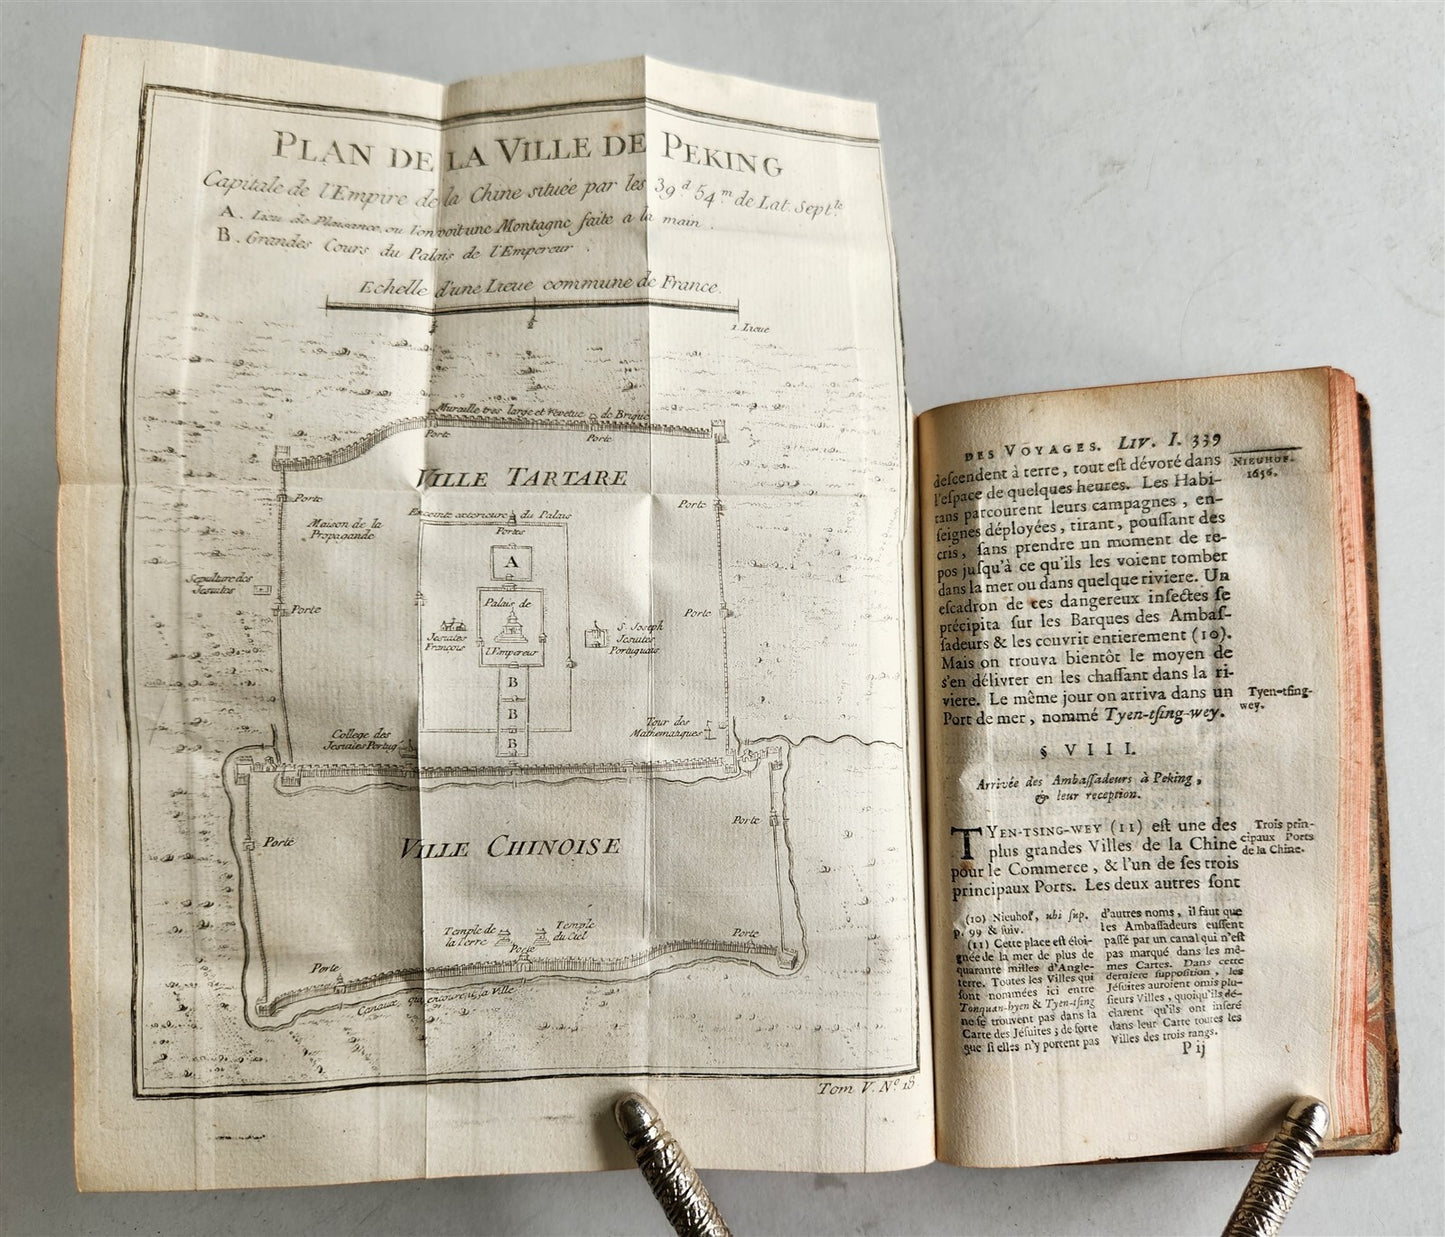 PLAN DE LA VILLE DE PEKING
Capitale de l'Empire de la Chine située par les 39.d 54.m de Lat. Sept.le
A. Lieu de Plaisance, ou l'on voit une Montagne faite a la main.
B. Grandes Cours du Palais de l'Empereur.
Echelle d'une Lieue commune de France.
1. Lieue
Muraille tres large et revetue de Brique
Porte
Porte
VILLE TARTARE
Porte
Porte
Enceinte exterieure du Palais
Portes
Maison de la
Propagande
A
Sepulture des
Jesuites
Porte
Porte
Palais de
l'Empereur
Jesuites
François
S. Joseph
Jesuites
Portuguais
B
B
B
College des
Jesuites Portug.
Tour des
Mathematiques
Porte
Porte
VILLE CHINOISE
Temple de
la Terre
Temple
du Ciel
Porte
Porte
Porte
Canaux, qui encourent la Ville
Tom V. No. 18
DES VOYAGES. LIV. I. 339
descendent à terre, tout est dévoré dans
l'espace de quelques heures. Les Habi-
tans parcourent leurs campagnes, en-
seignes déployées, tirant, poussant des
cris, sans prendre un moment de re-
pos jusqu'à ce qu'ils les voient tomber
dans la mer ou dans quelque riviere. Un
escadron de ces dangereux insectes se
précipita sur les Barques des Ambas-
sadeurs & les couvrit entierement (10).
Mais on trouva bientôt le moyen de
s'en délivrer en les chassant dans la ri-
viere. Le même jour on arriva dans un
Port de mer, nommé Tyen-tsing-wey.
NIEUHOF.
1656.
Tyen-tsing-
wey.
§ VIII.
Arrivée des Ambassadeurs à Peking,
& leur reception.
TYEN-TSING-WEY (11) est une des
plus grandes Villes de la Chine
pour le Commerce, & l'un de ses trois
principaux Ports. Les deux autres sont
Trois prin-
cipaux Ports
de la Chine.
(10) Nieuhof, ubi sup.
p. 99 & suiv.
(11) Cette place est éloi-
gnée de la mer de plus de
quarante milles d'Angle-
terre. Toutes les Villes qui
sont nommées ici entre
Tonquan-hyen & Tyen-tsing
ne se trouvent pas dans la
Carte des Jésuites; de sorte
que si elles n'y portent pas
d'autres noms, il faut que
les Ambassadeurs eussent
passé par un canal qui n'est
pas marqué dans les mê-
mes Cartes. Dans cette
derniere supposition, les
Jésuites auroient omis plu-
sieurs Villes, quoiqu'ils dé-
clarent qu'ils ont inseré
dans leur Carte toutes les
Villes des trois rangs.
P ij